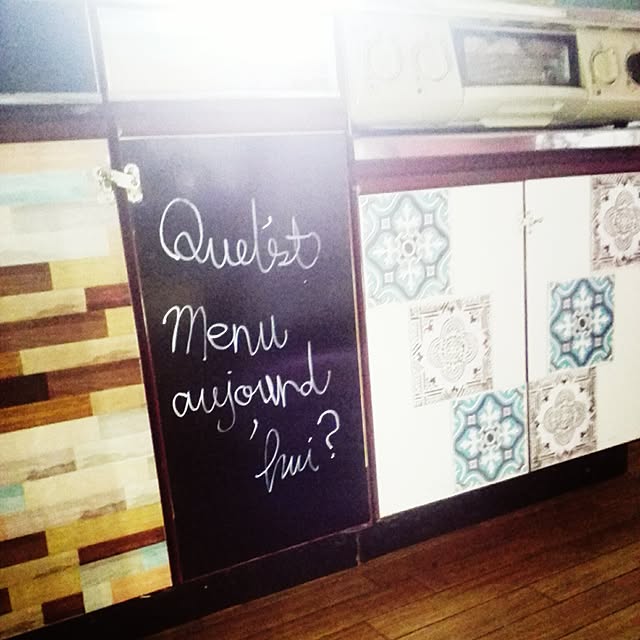 Quel'est
Menu
aujourd
'hui?